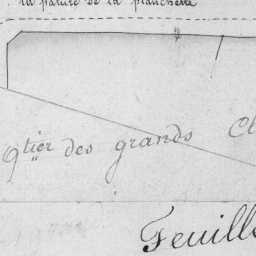 la pature de la planchette
Qtier des grands Cl
Feuille